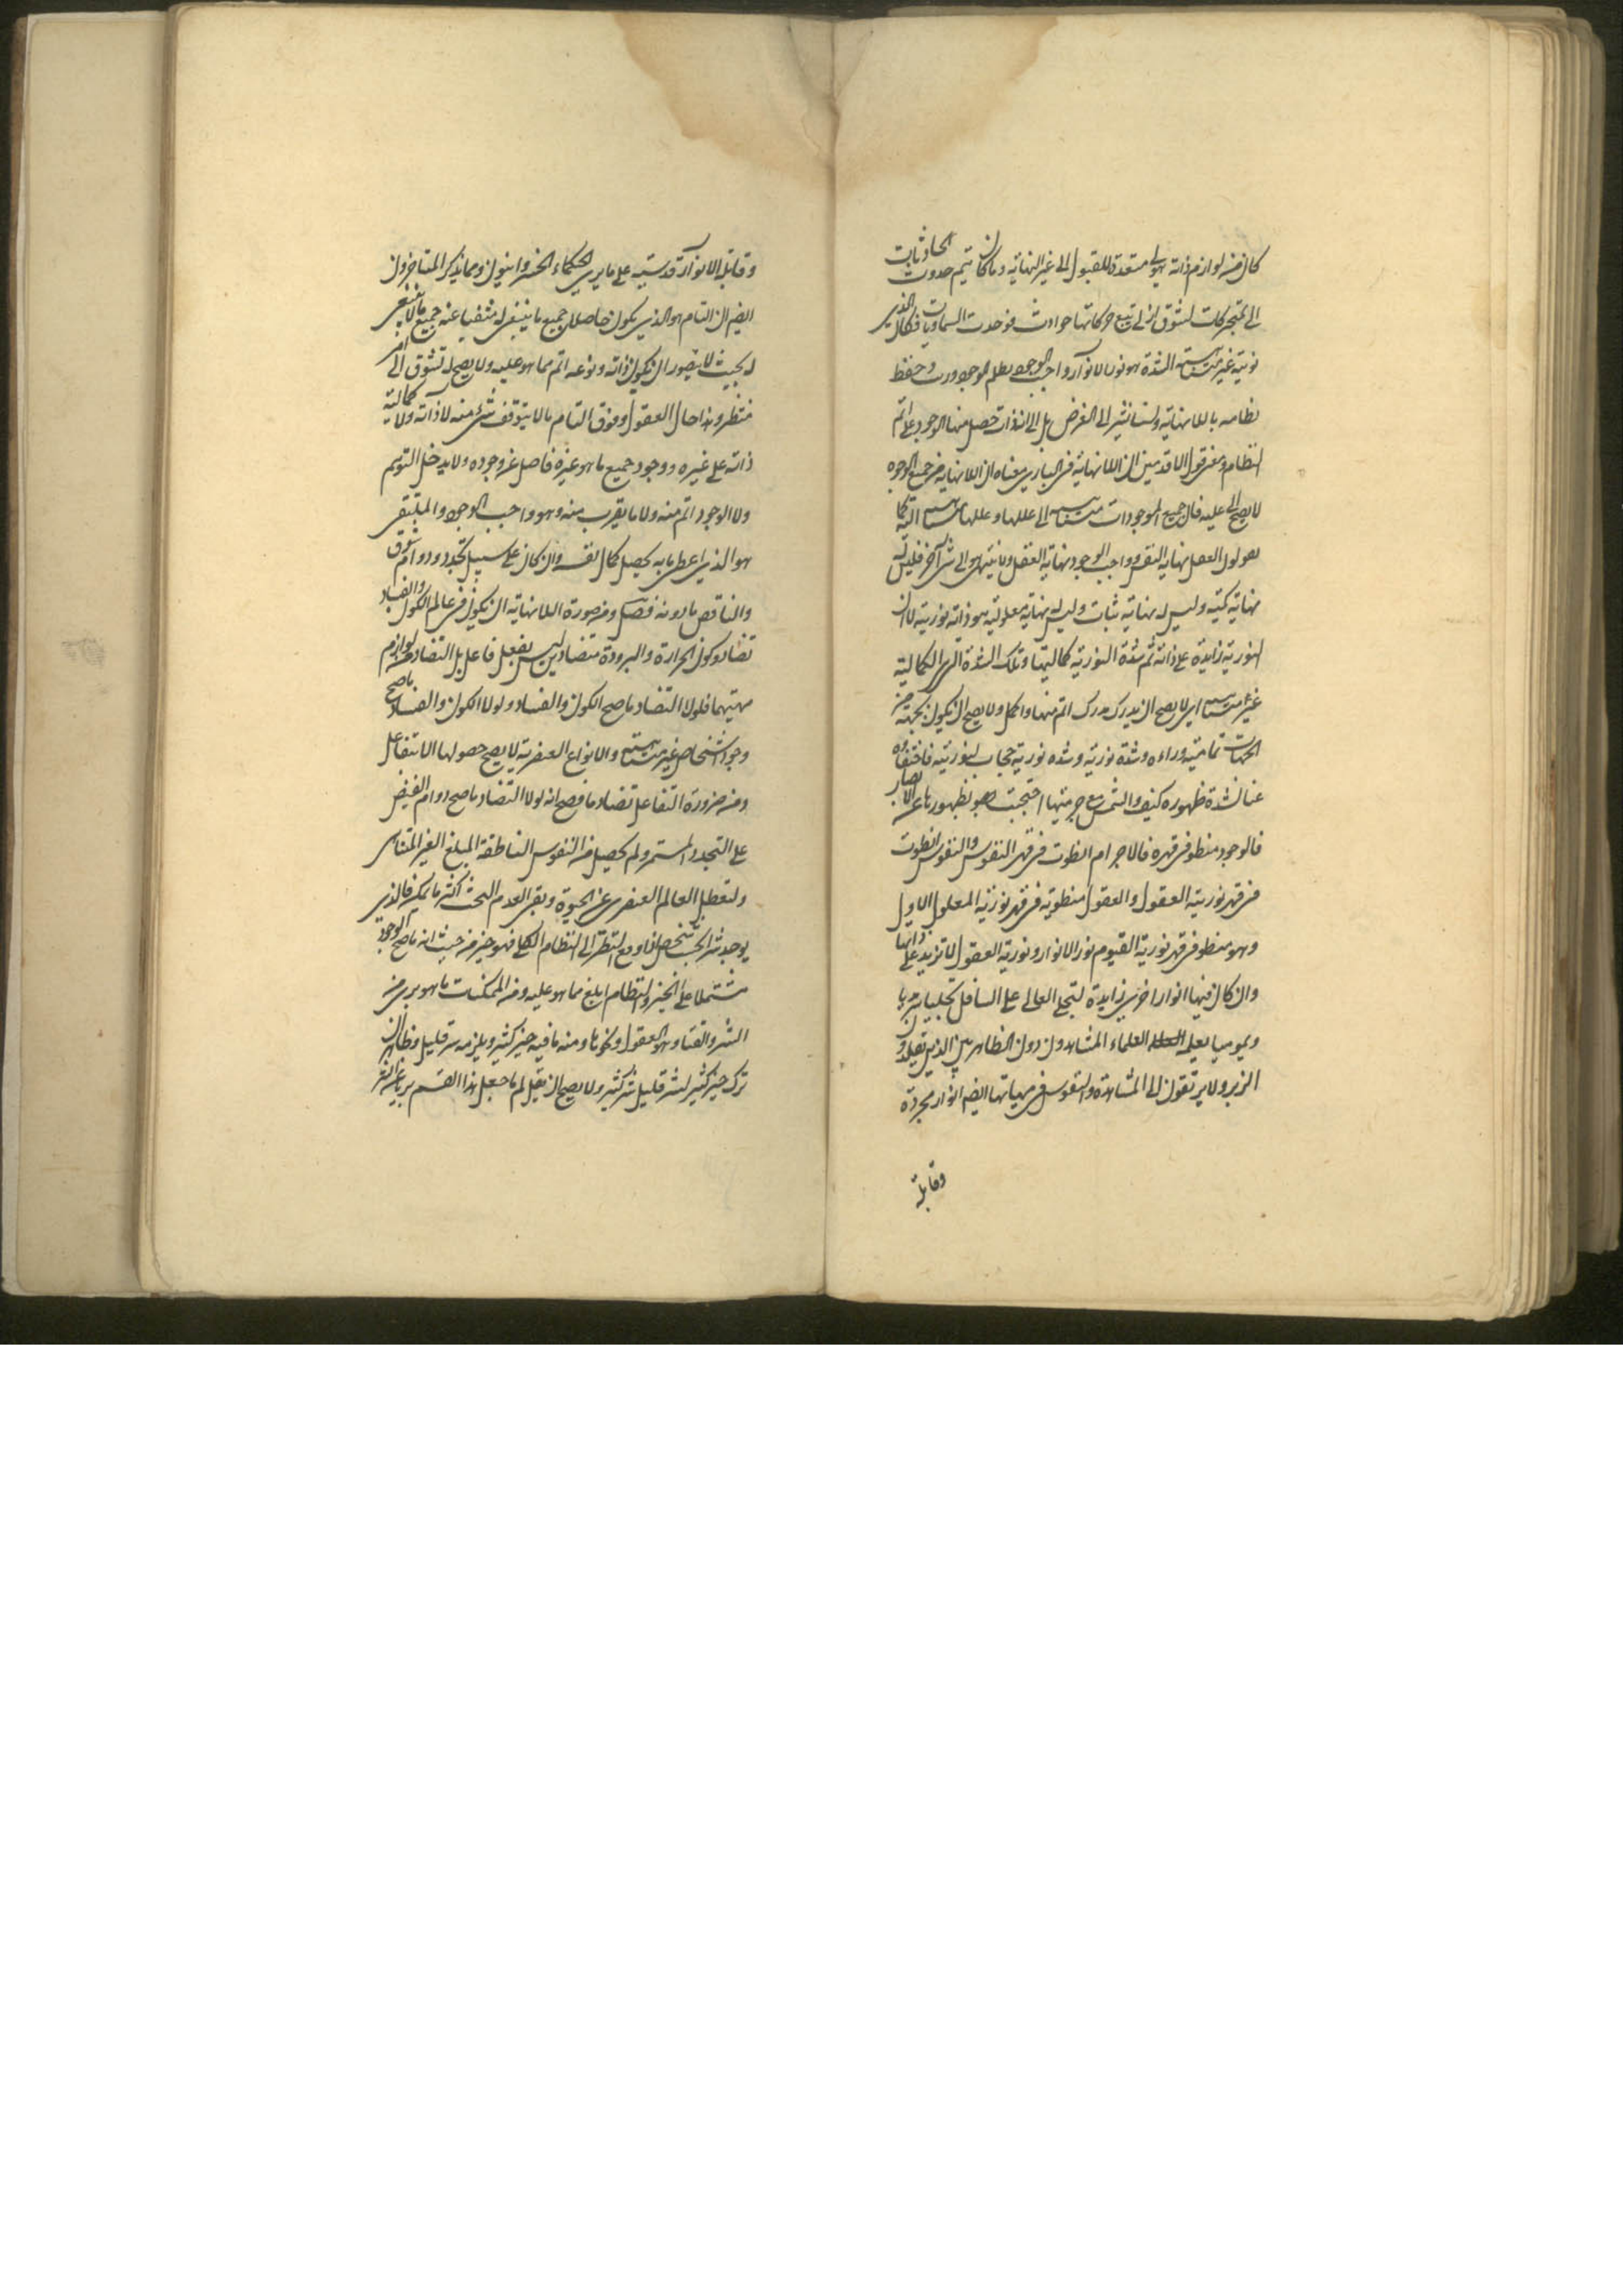 كان من لوازم ذاته هيولى مستعدة للقبول الى غير النهاية وما كان يتم حدوث الحادثات
الى متحركات لشوق ازلى تتبع حركاتها حوادث فوجدت السماويات فكان الذى
نوريته غير متناهية الشدة هو نور الانوار واجب الوجود نظم الوجود ورتب وحفظ
نظامه باللانهاية ولسنا نشير الى الغرض بل الى ان ذات حصل منها الوجود على اتم
النظام ومعنى قول الاقدمين ان اللانهاية فى البارى معناه ان اللانهاية من جميع الوجوه
لا يصح الى عليه فان جميع الموجودات متناهية الى عللها وعللها متناهية اليه كما
يقولون العقل نهاية النفس وواجب الوجود نهاية العقل ولا ينتهى هو الى شئ آخر فليس له
نهاية كمية وليس له نهاية ثبات وليس له نهاية معلولية هو ذاته نورية لا ان
النورية زايدة على ذاته ثم شدة النورية كماليتها وتلك الشدة الكمالية
غير متناهية اى لا يصح ان يدرك مدرك اتم منها واكمل ولا يصح ان يكون بجهة من
الجهات تمامية وراءه وشدة نورية وشدة نوريته حجاب لنوريته فاختفاؤه
عنا لشدة ظهوره كيف والشمس مع جرميتها احتجبت هو بظهورها عن الابصار
فالوجود منطو فى قهره فالاجرام انطوت فى قهر النفوس والنفوس انطوت
فى قهر نورية العقول والعقول منطوية فى قهر نورية المعلول الاول
وهو منطو فى قهر نورية القيوم نور الانوار ونورية العقول لا تزيد على ذواتها
وان كان فيها انوار اخرى زايدة لتجلى العالى على السافل تجليا سرمديا
ويوميا يعلمه العلماء المشاهدون دون الظاهريين الذين يقلدون
الزبر ولا يرتقون الى المشاهدة والنفوس فى مهياتها ايضا انوار مجردة
وقابلة
وقابلة لانوار قدسية على ما يرى الحكماء الخسروانيون ومما يذكر المتاخرون
ايضا ان التام هو الذى يكون حاصلا له جميع ما ينبغى له منفيا عنه جميع ما لا ينبغى
له بحيث لا يتصور ان يكون ذاته ونوعه اتم مما هو عليه ولا يصح له تشوق الى امر
منتظر وهذا حال العقول وفوق التام ما لا يتوقف شئ منه لا ذاته ولا كمالية
ذاته على غيره ووجود جميع ما هو غيره فاضل عن وجوده ولا يدخل التوهم
ولا الوجود اتم منه ولا ما يقرب منه وهو واجب الوجود والمكتفى
هو الذى اعطى ما به يحصل كمال نفسه وان كان على سبيل تجدد ودوام شوق
والناقص ما دونه فصل ومن ضرورة اللانهاية ان يكون فى عالم الكون والفساد
تضاد وكون الحرارة والبرودة متضادين ليس بفعل فاعل بل التضاد من لوازم
مهيتهما فلولا التضاد ما صح الكون والفساد ولولا الكون والفساد ما صح
وجود اشخاص غير متناهية والانواع العنصرية لا يصح حصولها الا بتفاعل
ومن ضرورة التفاعل تضاد ما فصح انه لولا التضاد ما صح دوام الفيض
على التجدد المستمر ولم يحصل من النفوس الناطقة المبلغ الغير المتناهى
ولتعطل العالم العنصرى عن الحيوة وبقى العدم البحت اكثر ما يمكن فالذى
يوجد شرا بحسب شخص اذا ومع النظر الى النظام الكلى فهو خير من حيث انه ما صح الوجود
مشتملا على الخير والنظام ابلغ مما هو عليه ومن الممكنات ما هو برىء من
الشر والفساد وهو العقول ونحوها ومنه ما فيه خير كثير ويلزمه شر قليل وظاهر ان
ترك خير كثير لشر قليل شر كثير ولا يصح ان يقال لم ما جعل هذا القسم بريا عن الشر